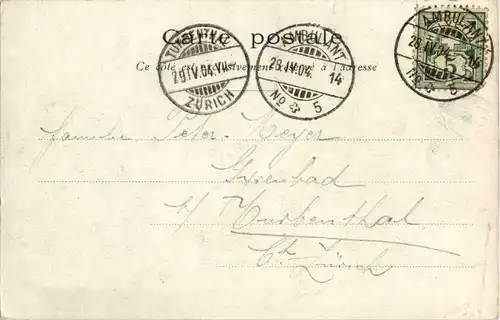 Carte postale
Ce côté est exclusivement réservé à l'adresse
TURBENTHAL
29.IV.04.VII
ZÜRICH
AMBULANT
28.IV.04. 14
No 5
AMBULANT
28.IV.04. 14
No 5
Familie Peter-Meyer
Gyrenbad
b/ Turbenthal
Ct. Zürich